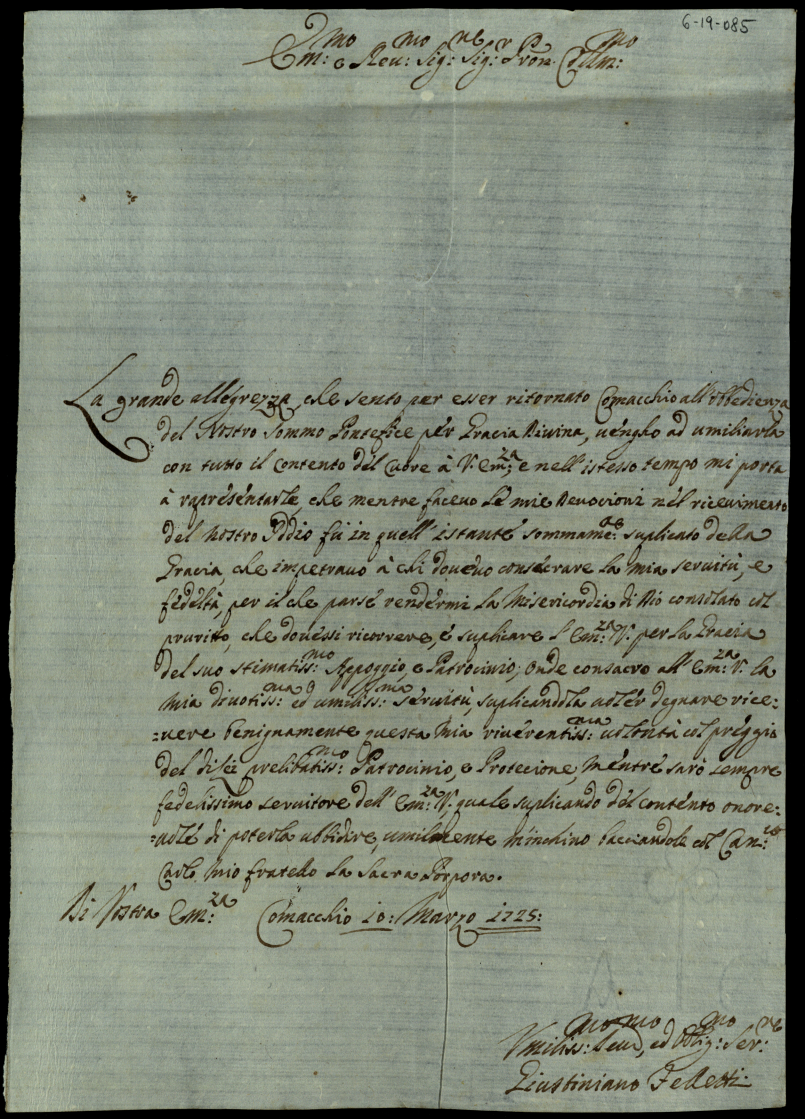 6-19-085
Em:mo e Reu:mo Sig:re Sig:r Pron P Colm:mo
La grande allégrezza, che sento per esser ritornato Comacchio all'Obbedienza
del Nostro Sommo Pontefice pér Gracia Diuina, uéngho ad umiliarla
con tutto il contento dél Cuore à V: Em:za, e nell'istesso tempo mi porta
à raprésentarle, che mentre faceuo le mie Deuocioni nél riceuimento
del nostro Iddio fui in quell'istante sommame:te suplicato della
Gracia, che impetrauo à chi doueuo consécrare la mia seruitù, e
fédeltà, per il che parsé rendérmi la Misericordia di Dio consolato col
prurito, che douéssi ricorrere, é suplicare l'Em:za V: per la Gracia
del suo stimatiss:mo Appoggio, e Patrocinio; Onde consacro all'Em:za V: la
mia diuotiss:ma ed umiliss:ma séruitù, suplicandola uolér degnare rice=
=uere benignamente questa mia riuérentiss:ma uolontà col préggio
del di Lei prelibatiss:mo Patrocinio, e Protecione, méntré sarò sempre
fedelissimo seruitore dell'Em:za V: quale suplicando dél conténto onore=
=uolé di poterla ubbidire, umilmente m'inchino bacciandole col Can:co
Carlo mio fratello la Sacra Pórpora.
Di Vostra Em:za Comacchio 10: Marzo 1725:
Vmiliss:mo Deu:mo, ed Obblig:mo Ser:re
Giustiniano Felletti